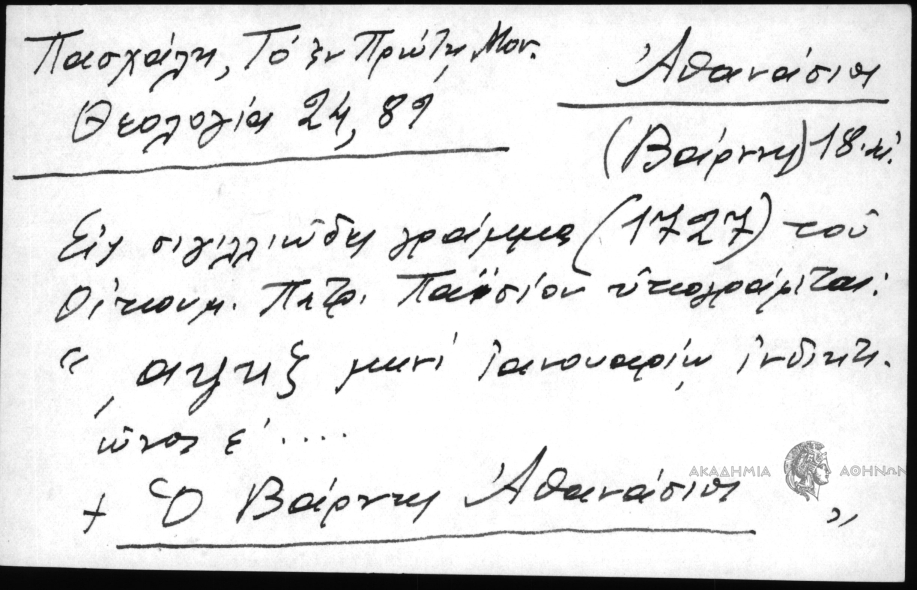 Πασχάλη, Τὸ ἐν Πρώτη, Μον.
Θεολογία 24, 89
Ἀθανάσιος
(Βάρνης) 18 αἰ.
Εἰς σιγιλλιῶδες γράμμα (1727) τοῦ
Οἰκουμ. Πατρ. Παϊσίου ὑπογράφεται:
" ͵αψκζ μηνὶ Ἰανουαρίῳ ἰνδικτι-
ῶνος ε' ....
+ Ὁ Βάρνης Ἀθανάσιος "
ΑΚΑΔΗΜΙΑ ΑΘΗΝΩΝ